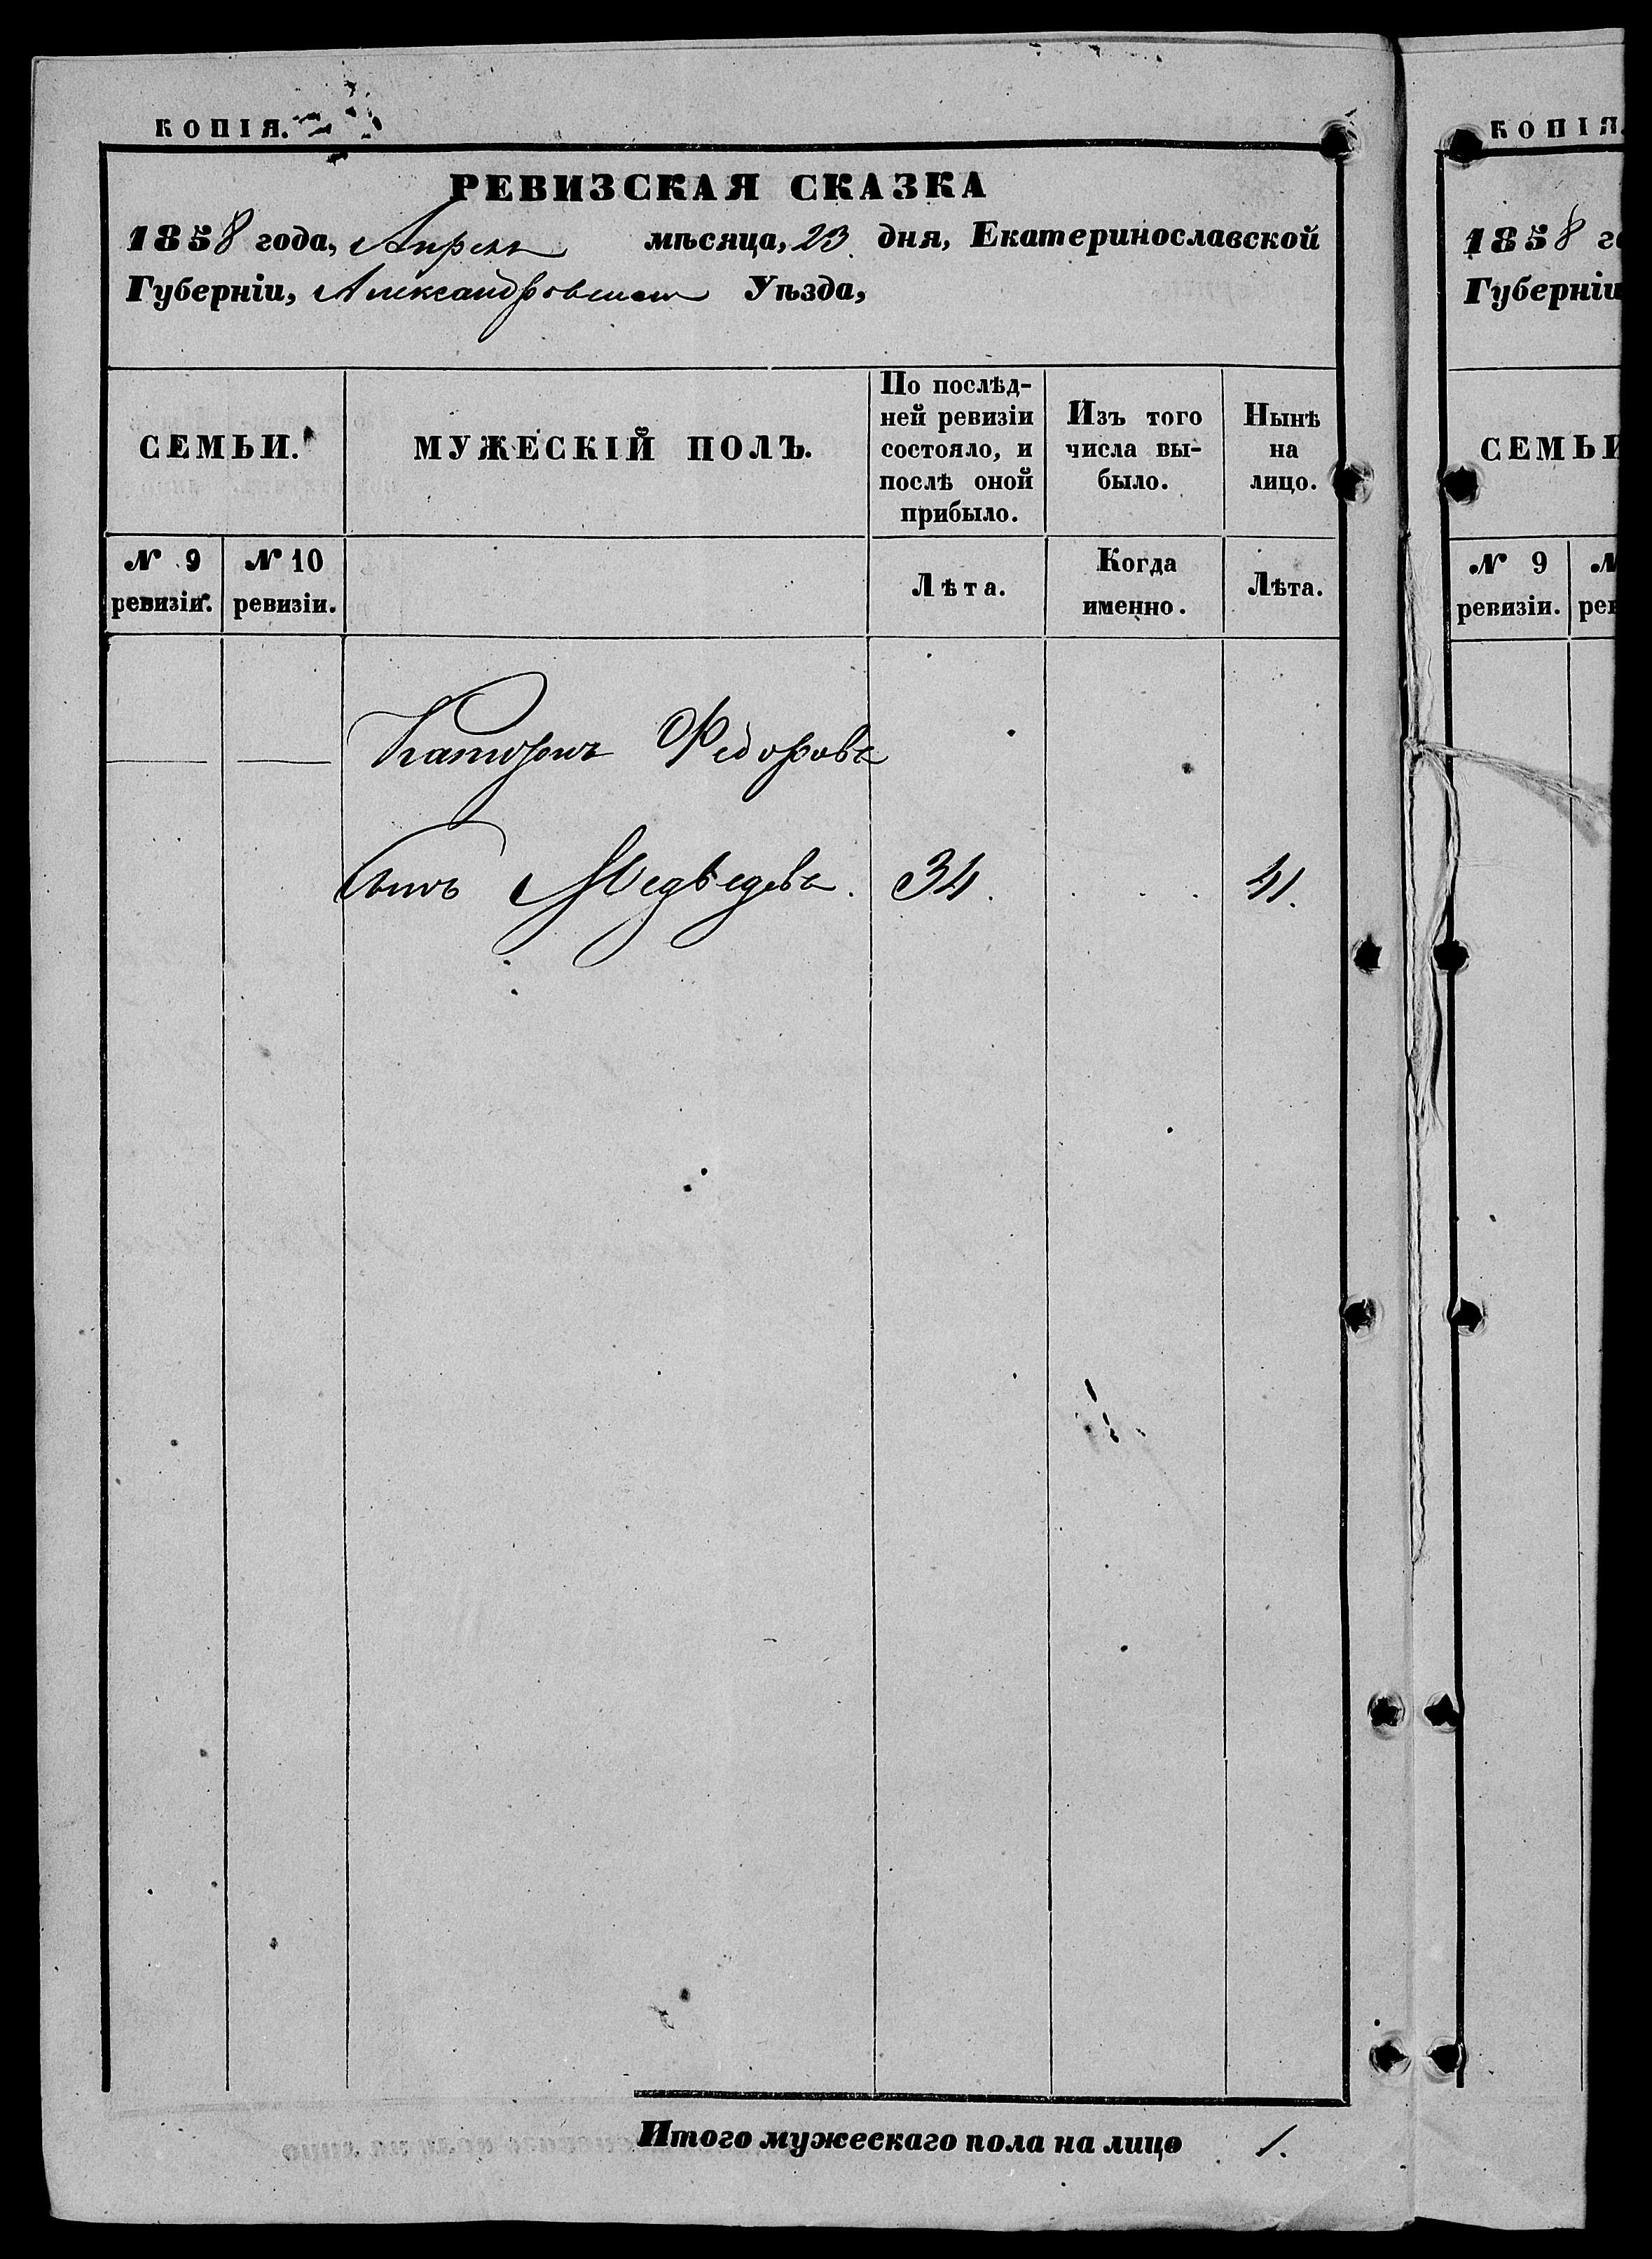 КОПІЯ.
РЕВИЗСКАЯ СКАЗКА
1858 года, Апреля мѣсяца, 23 дня, Екатеринославской
Губерніи, Александровскаго Уѣзда,
СЕМЬИ.
МУЖЕСКІЙ ПОЛЪ.
По послѣд-
ней ревизіи
состояло, и
послѣ оной
прибыло.
Изъ того
числа вы-
было.
Нынѣ
на
лицо.
№ 9
ревизіи.
№ 10
ревизіи.
Лѣта.
Когда
именно.
Лѣта.
Федоровъ
сынъ Медвѣдевъ. 34. . . . 41.
Итого мужескаго пола на лицо 1.
КОПІЯ
1858 го
Губерніи
СЕМЬИ
№ 9
ревизіи.
№
рев